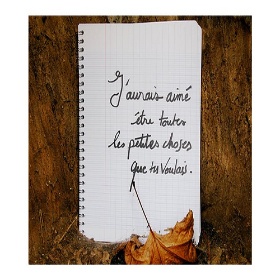 J'aurais aimé
être toutes
les petites choses
que tu voulais.